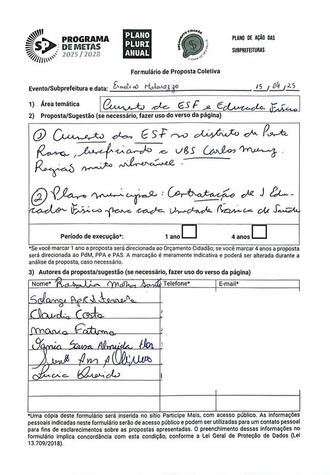 SP
PROGRAMA
DE METAS
2025 / 2028
PLANO
PLURI
ANUAL
PLANO DE AÇÃO DAS
SUBPREFEITURAS
Formulário de Proposta Coletiva
Evento/Subprefeitura e data: Ermelino Matarazzo 15, 04, 25
1) Área temática Aumento de ESF e Educador Físico
2) Proposta/Sugestão (se necessário, fazer uso do verso da página)
① Aumento dos ESF no distrito de Ponte
Rasa, beneficiando a UBS Carlos Muniz.
Região muito vulnerável.
② Plano municipal: Contratação de 1 Edu-
cador Físico para cada Unidade Básica de Saúde
Período de execução*: 1 ano 4 anos
*Se você marcar 1 ano a proposta será direcionada ao Orçamento Cidadão; se você marcar 4 anos a proposta
será direcionada ao PdM, PPA e PAS. A marcação é meramente indicativa e poderá ser alterada durante a
análise da proposta, caso necessário.
3) Autores da proposta/sugestão (se necessário, fazer uso do verso da página)
Nome* Rosalia Telefone* E-mail*
Solange Ferreira
Claudia Costa
Maria Fatima
Sousa Almeida
Lucia
*Uma cópia deste formulário será inserida no sítio Participe Mais, com acesso público. As informações
pessoais indicadas neste formulário serão de acesso público e podem ser utilizadas para um contato pessoal
para fins de esclarecimentos sobre as propostas apresentadas. O preenchimento dessas informações no
formulário implica concordância com esta condição, conforme a Lei Geral de Proteção de Dados (Lei
13.709/2018).